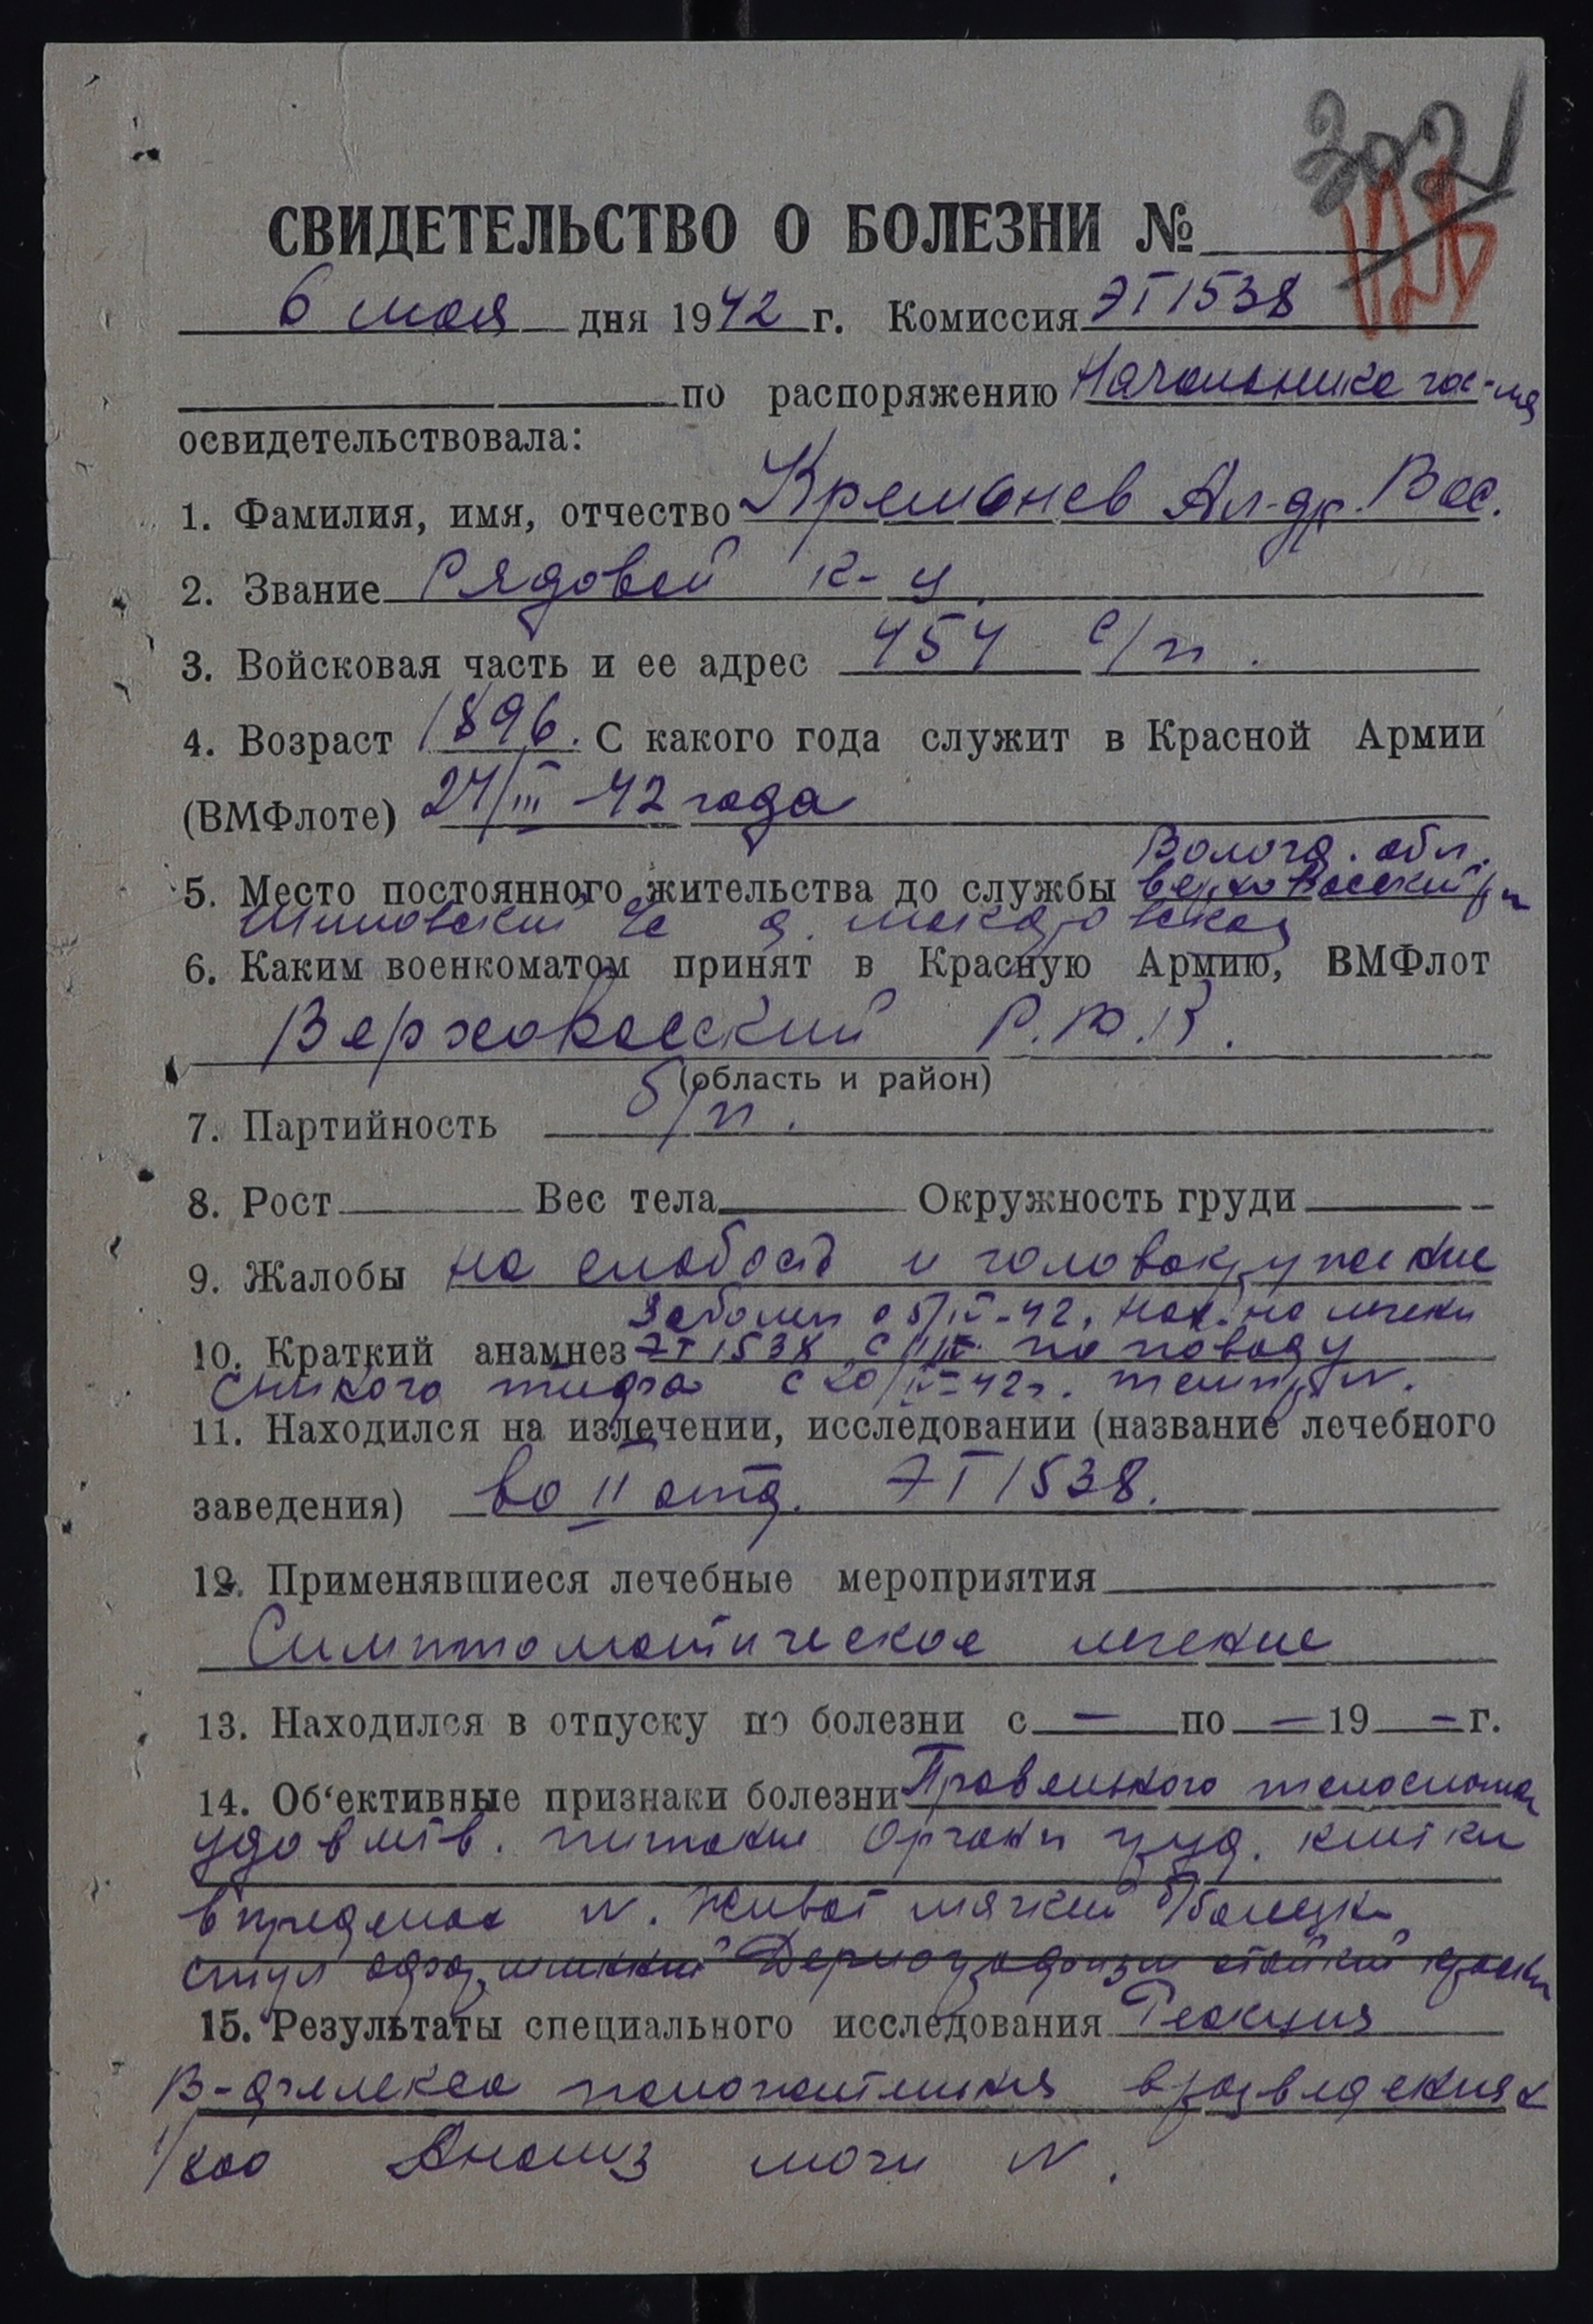 302
СВИДЕТЕЛЬСТВО О БОЛЕЗНИ №
6 мая дня 1942 г. Комиссия ЭГ 1538
по распоряжению Начальника гос-ля
освидетельствовала:
1. Фамилия, имя, отчество Кремонев Ал-др. Вас.
2. Звание Рядовой к-ц.
3. Войсковая часть и ее адрес 454 с/п.
4. Возраст 1896. С какого года служит в Красной Армии
(ВМФлоте) 24/III-42 года
Волога. обл.
5. Место постоянного жительства до службы
д. макаровская
6. Каким военкоматом принят в Красную Армию, ВМФлот
Верховасский Р.В.К.
(область и район)
7. Партийность б/п.
8. Рост Вес тела Окружность груди
9. Жалобы на слабость и головокружение
Заболел с 5/IV-42, нах. на лечен
10. Краткий анамнез ЭГ 1538 с по поводу
сыпного тифа с 20/IV-42г. темпер. N.
11. Находился на излечении, исследовании (название лечебного
заведения) во II отд. ЭГ 1538.
12. Применявшиеся лечебные мероприятия
Симптоматическое лечение
13. Находился в отпуску по болезни с - по - 19 - г.
14. Об'ективные признаки болезни Правильного телослож
удовлтв. питания Органы груд. клетки
в пределах N. Живот мягкий б/болезн
стул Дермографизм стойкий красн
15. Результаты специального исследования Реакция
В-Феликса положительная в разведениях
1/800 Анализ мочи N.